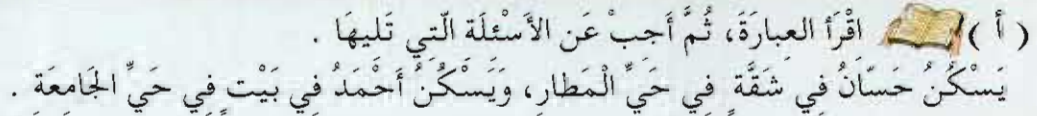 ( أ ) اقْرَأ العِبارَةَ، ثُمَّ أَجِبْ عَن الأَسْئِلَة الَّتِي تَليهَا .
يَسْكُنُ حَسّانُ فِي شَقَّةٍ فِي حَيِّ الْمَطارِ، وَيَسْكُنُ أَحْمَدُ فِي بَيْتٍ فِي حَيِّ الجَامعَةِ .